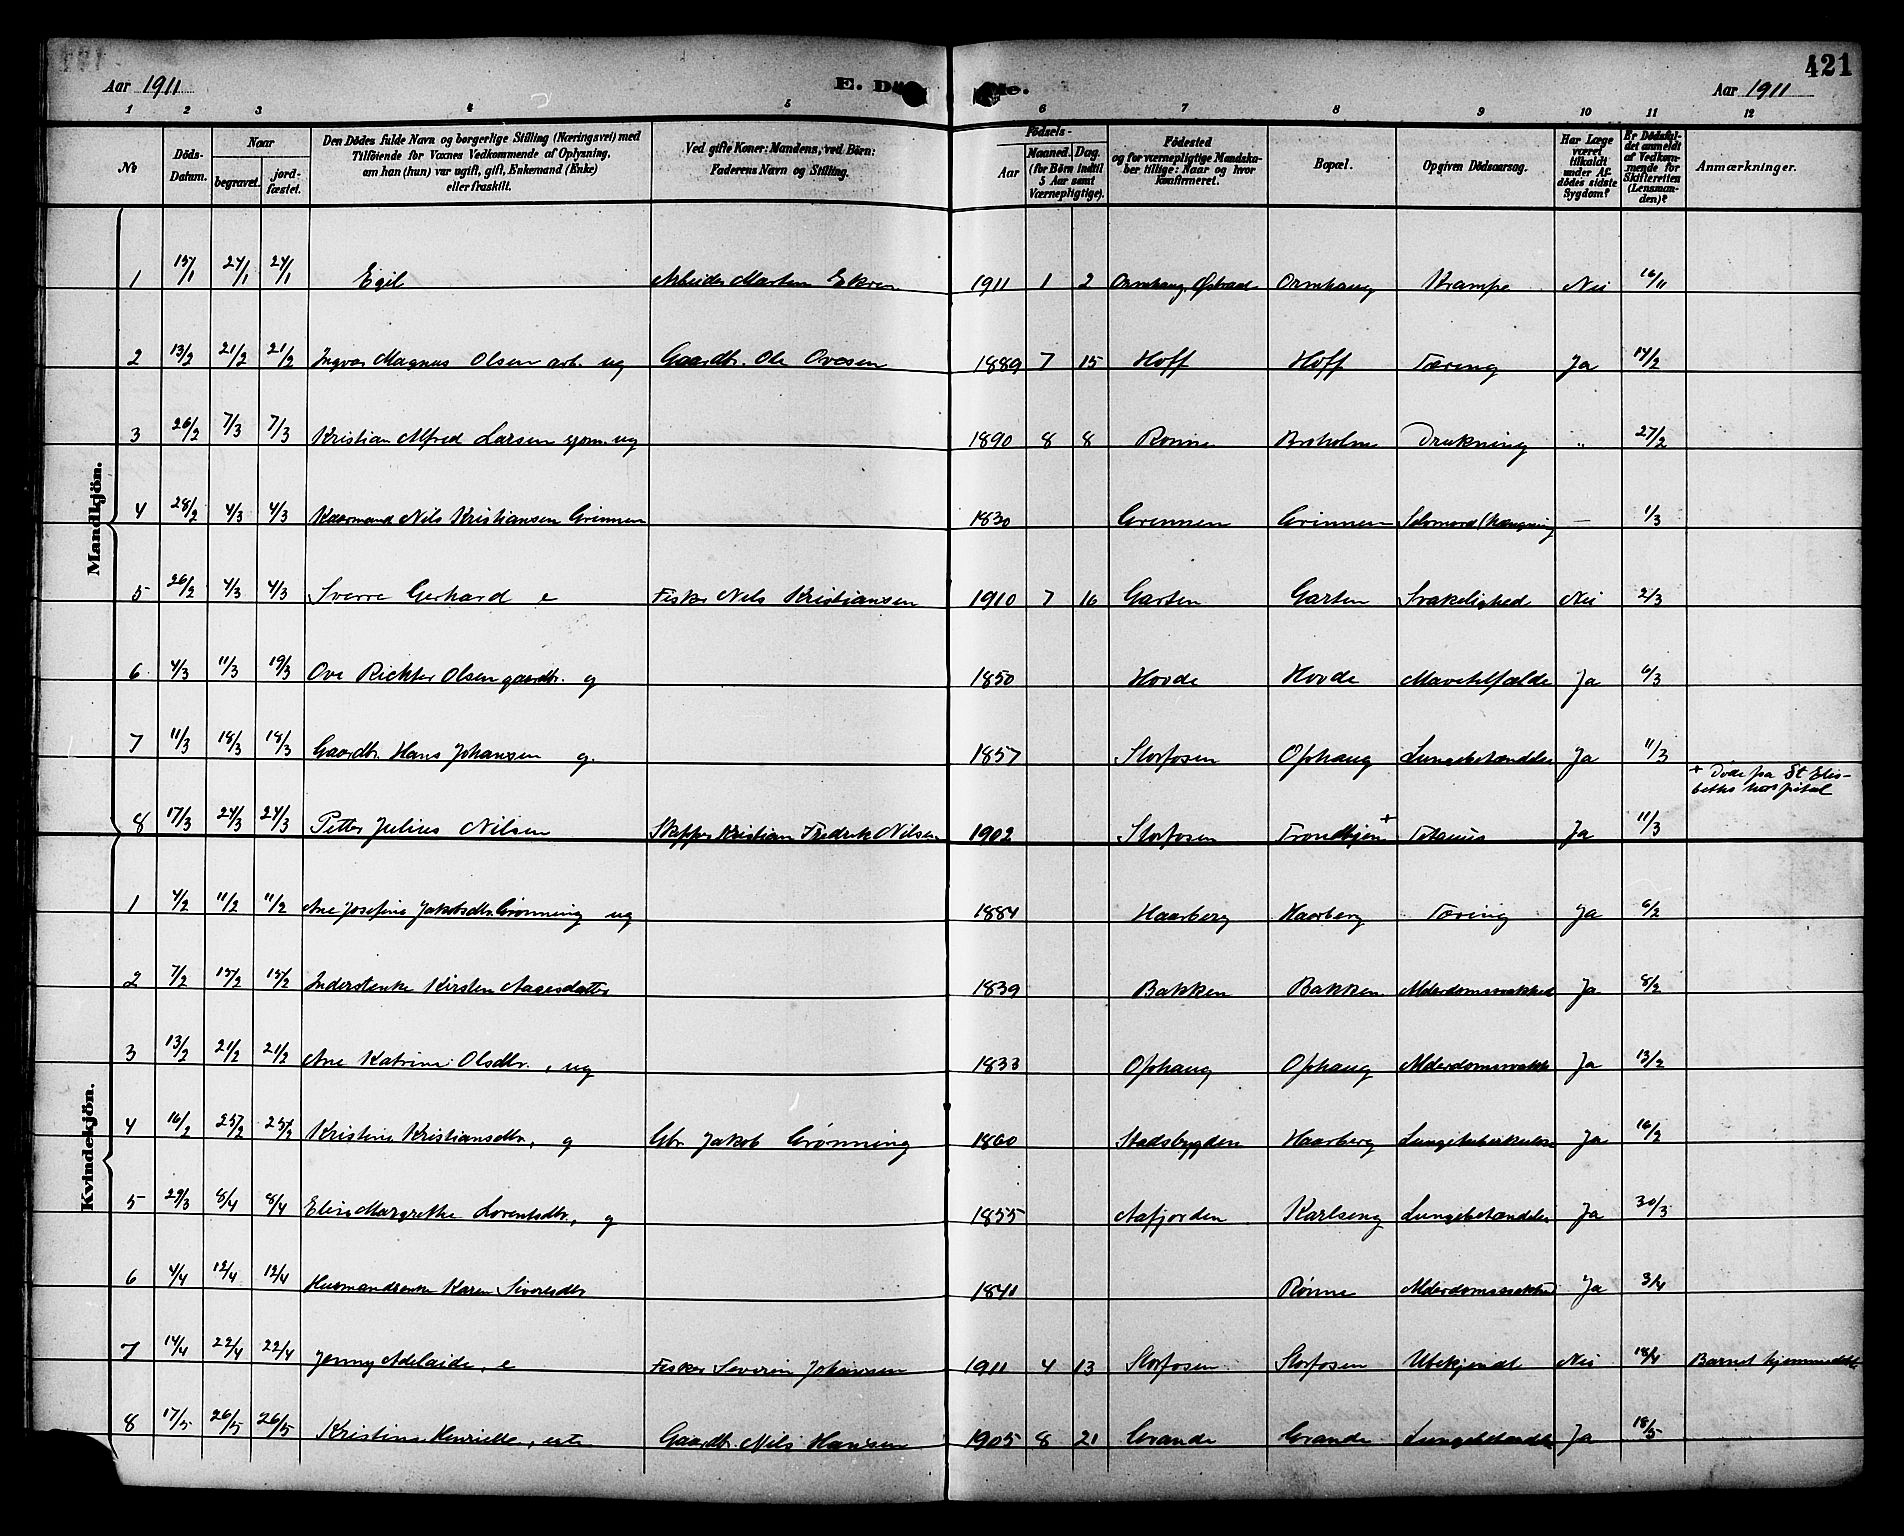 421
Aar 1911
E. Dø de.
Aar 1911
1 2 3 4 5 6 7 8 9 10 11 12
No
Döds-Datum.
Naar
begravet.
jord-fæstet.
Den Dödes fulde Navn og borgerlige Stilling (Næringsvei) med
Tilföiende for Voxnes Vedkommende af Oplysning,
om han (hun) var ugift, gift, Enkemand (Enke)
eller fraskilt.
Ved gifte Koner: Mandens, ved Börn:
Faderens Navn og Stilling.
Födsels-
Aar
Maaned. Dag.
(for Börn indtil
5 Aar samt
Værnepligtige).
Födested
og for værnepligtige Mandska-
ber tillige: Naar og hvor
konfirmeret.
Bopæl.
Opgiven Dödsaarsag.
Har Læge
været
tilkaldt
under Af-
dödes sidste
Sygdom?
Er Dödsfal-
det anmeldt
af Vedkom-
mende for
Skifteretten
(Lensman-
den)?
Anmærkninger.
Mandkjön.
1 15/1 24/1 24/1 Egil Arbeider Martin Ekren 1911 1 2 Ormhaug Ørland Ormhaug Krampe Nei 16/11
2 13/2 21/2 21/2 Ingvar Magnus Olsen arb. ug Gaardbr. Ole Ovesen 1889 7 15 Hoff Hoff Tæring Ja 14/2
3 26/2 7/3 7/3 Kristian Alfred Larsen sjøm. ug 1890 8 8 Rønne Broholm Drukning " 27/2
4 28/2 4/3 4/3 Kaarmand Nils Kristiansen Grinnen 1830 Grinnen Grinnen Selvmord (hængning — 1/3
5 26/2 4/3 4/3 Sverre Gerhard e Fisker Nils Kristiansen 1910 7 16 Garten Garten Svakelighed Nei 2/3
6 4/3 11/3 19/3 Ove Richter Olsen gaardbr. g 1850 Hovde Hovde Mavetilfælde Ja 6/3
7 11/3 18/3 18/3 Gaardbr. Hans Johansen g. 1857 Storfosen Ophaug Lungebetændelse Ja 11/3
+ Døde paa St Elis-
beths hospital
8 17/3 24/3 24/3 Petter Julius Nilsen Skipper Kristian Fredrik Nilsen 1902 Storfosen Trondhjem + Tetanus Ja 11/3
Kvindekjön.
1 4/2 11/2 11/2 Ane Josefine Jakobsdtr. Grønning ug 1884 Haarberg Haarberg Tæring Ja 6/2
2 7/2 15/2 15/2 Inderstenke Kirsten Aagesdatter 1839 Bakken Bakken Alderdomssvakhed Ja 8/2
3 13/2 21/2 21/2 Ane Katrine Olsdtr., ug 1833 Ophaug Ophaug Alderdomssvakh Ja 13/2
4 16/2 25/2 25/2 Kristine Kristiansdtr., g Gbr. Jakob Grønning 1860 Stadsbygden Haarberg Lungetuberkulose Ja 16/2
5 29/3 8/4 8/4 Elise Margrethe Lorentsdtr., g 1855 Aafjorden Karlseng Lungebetændelse Ja 30/3
6 4/4 12/4 12/4 Husmandsenke Karen Sivertsdtr 1841 Rønne Alderdomssvakhed Ja 3/4
7 14/4 22/4 22/4 Jenny Adelaide, e Fisker Severin Johansen 1911 4 13 Storfosen Storfosen Ubekjendt Nei 18/4 Barnet hjemmedøbt.
8 17/5 26/5 26/5 Kristine Henriette, Gaardbr. Nils Hansen 1905 8 21 Grande Grande Lungebetændelse Ja 18/5